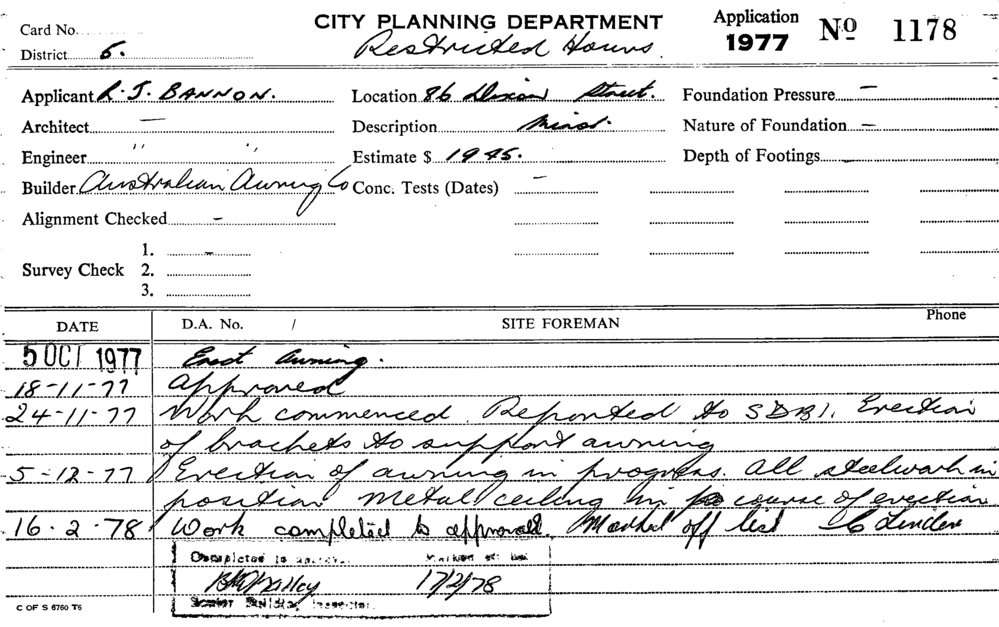 Card No.
CITY PLANNING DEPARTMENT
Application 1977 No 1178
District 5.
Restricted Hours.
Applicant R. J. BANNON. Location 86 Dixon Street. Foundation Pressure —
Architect — Description Minor. Nature of Foundation —
Engineer " " Estimate $ 1945. Depth of Footings —
Builder Australian Awning Co Conc. Tests (Dates) —
Alignment Checked —
1. —
Survey Check 2.
3.
DATE D.A. No. / SITE FOREMAN Phone
5 OCT 1977 Erect Awning.
18-11-77 Approved
24-11-77 Work commenced. Reported to SDBI. Erection
of brackets to support awning
5-12-77 Erection of awning in progress. All steelwork in
position Metal ceiling in course of erection
16-2-78 Work completed to approval. Marked off list C Linden
Completed to approval. Marked off list
17/2/78
Senior Building Inspector.
C OF S 6760 T6